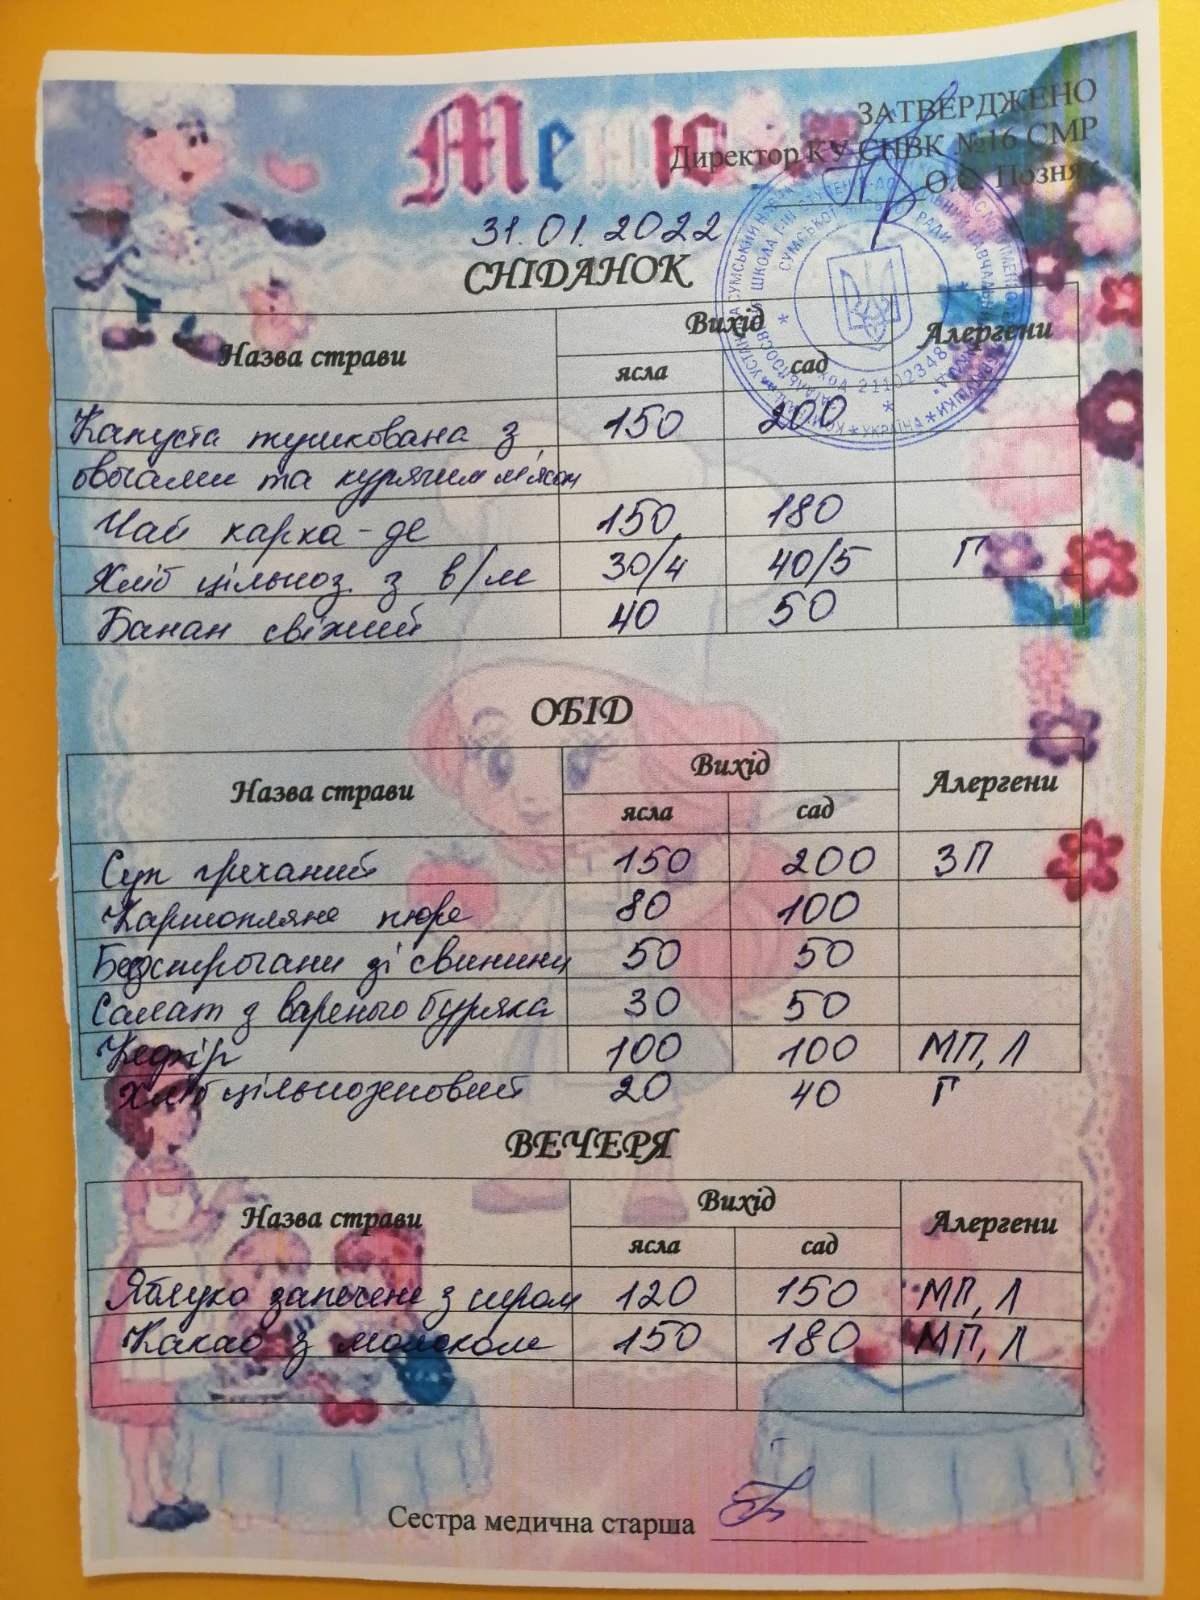 Меню
ЗАТВЕРДЖЕНО
Директор КУ СНВК №16 СМР
О.О. Позняк
31.01.2022
СНІДАНОК
Назва страви Вихід Алергени
ясла сад
Капуста тушкована з 150 200
овочами та курячим м'ясом
Чай карка-де 150 180
Хліб цільноз. з в/м 30/4 40/5 Г
Банан свіжий 40 50
ОБІД
Назва страви Вихід Алергени
ясла сад
Суп гречаний 150 200 ЗП
Картопляне пюре 80 100
Бефстрогани зі свинини 50 50
Салат з вареного буряка 30 50
Кефір 100 100 МП, Л
Хліб цільнозерновий 20 40 Г
ВЕЧЕРЯ
Назва страви Вихід Алергени
ясла сад
Яблуко запечене з сиром 120 150 МП, Л
Какао з молоком 150 180 МП, Л
Сестра медична старша